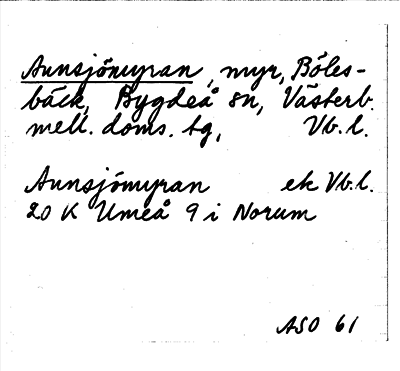 Aunsjömyran, myr, Böles-
bäck, Bygdeå sn, Västerb.
mell. doms. tg, Vb. l.
Aunsjömyran ek Vb. l.
20 K Umeå 9 i Norum
ASO 61